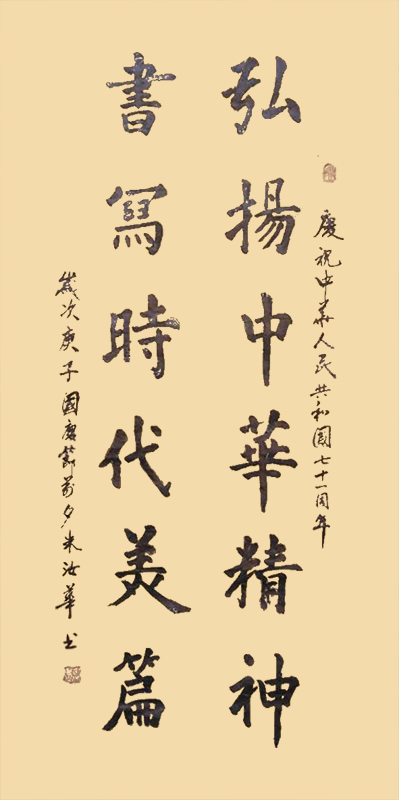 慶祝中華人民共和國七十一周年
弘揚中華精神
書寫時代美篇
歲次庚子國慶節前夕朱汝華书